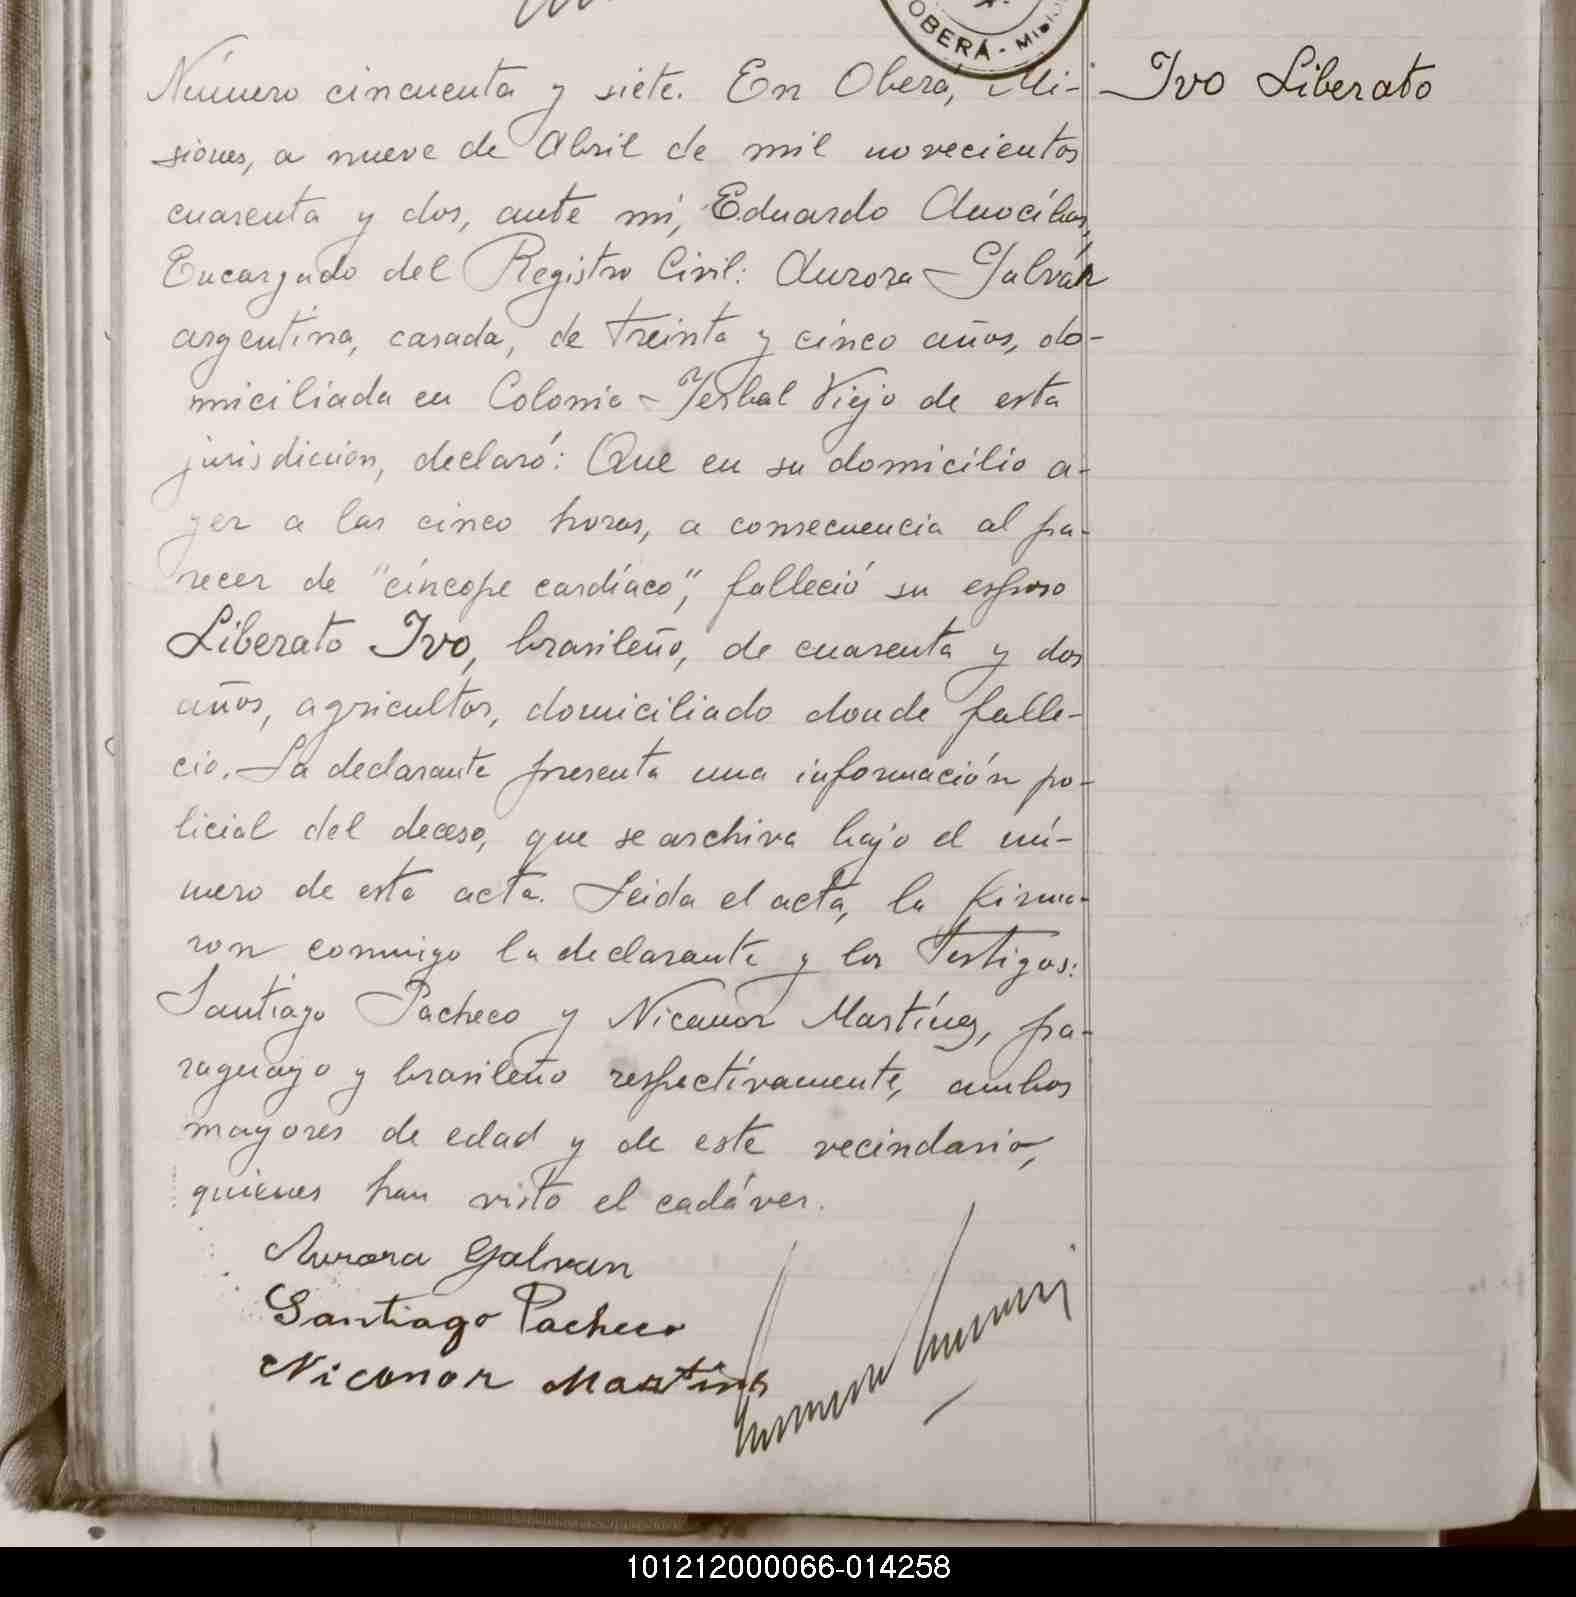 OBERÁ - Misio
Número cincuenta y siete. En Oberá, Mi-
Ivo Liberato
siones, a nueve de Abril de mil novecientos
cuarenta y dos, ante mí, Eduardo
Encargado del Registro Civil: Aurora Galván
argentina, casada, de treinta y cinco años, do-
miciliada en Colonia Yerbal Viejo de esta
jurisdicción, declaró: Que en su domicilio a-
yer a las cinco horas, a consecuencia al pa-
recer de "cíncope cardíaco", falleció su esposo
Liberato Ivo, brasileño, de cuarenta y dos
años, agricultor, domiciliado donde falle-
ció. La declarante presenta una información po-
licial del deceso, que se archiva bajo el nú-
mero de esta acta. Leida el acta, la firma-
ron conmigo la declarante y los testigos:
Santiágo Pacheco y Nicanor Martínez, pa-
raguayo y brasileño respectívamente, ambos
mayores de edad y de este vecindario,
quienes han visto el cadáver.
Aurora Galvan
Santiago Pacheco
Niconor Martins
101212000066-014258